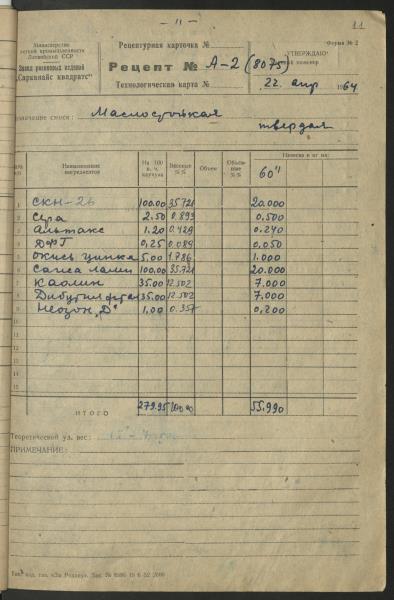 — 11 —
11
Министерство
легкой промышленности
Латвийской ССР
Завод резиновых изделий
„Сарканайс квадратс“
Рецептурная карточка №
Рецепт № А-2 (8075)
Технологическая карта №
Форма № 2
„УТВЕРЖДАЮ“
22. апр 1964
Маслостойкая
твердая
Наименование ингредиентов
На 100 в. ч. каучука
Весовые %%
Объем
Объемные %%
Навеска в кг на:
60"
1 СКН-26 100.00 35.721 20.000
2 Сера 2.50 0.893 0.500
3 Альтакс 1.20 0.429 0.240
4 ДФГ 0,25 0.089 0.050
5 Окись цинка 5.00 1.786 1.000
6 Сажа лами 100,00 35.721 20.000
7 Каолин 35.00 12.502 7.000
8 Дибутилфтал 35.00 12.502 7.000
9 Неозон „Д“ 1,00 0.357 0.200
10
11
12
13
14
15
ИТОГО 279.95 100.00 55.990
Теоретический уд. вес:
ПРИМЕЧАНИЕ: